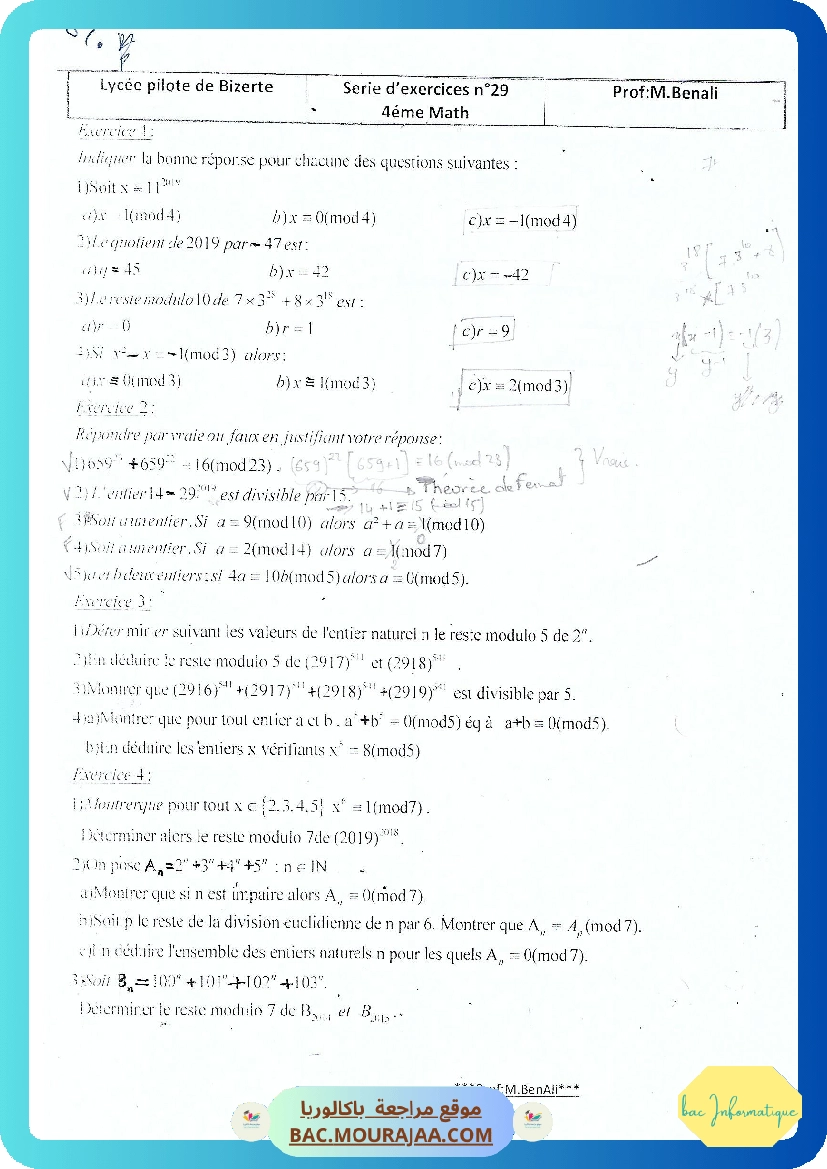 Lycée pilote de Bizerte
Serie d'exercices n°29
4éme Math
Prof:M.Benali
Exercice 1 :
Indiquer la bonne réponse pour chacune des questions suivantes :
1)Soit x = 11^2019
a)x = 1(mod 4) b)x ≡ 0(mod 4) c)x = -1(mod 4)
2)Le quotient de 2019 par - 47 est :
a)q = 45 b)x = 42 c)x = -42
3)Le reste modulo 10 de 7 × 3^28 + 8 × 3^18 est :
a)r = 0 b)r = 1 c)r = 9
4)Si x² - x = -1(mod 3) alors :
a)x ≡ 0(mod 3) b)x ≡ 1(mod 3) c)x ≡ 2(mod 3)
Exercice 2 :
Répondre par vraie ou faux en justifiant votre réponse :
1)659 + 659 = 16(mod 23) . (659)^22 [659+1] ≡ 16 (mod 23) } Vrais.
16 → Théorée de Fermat
2) L'entier 14 - 29^2019 est divisible par 15.
14 +1 ≡ 15
3)Soit a un entier. Si a = 9(mod 10) alors a² + a ≡ 1(mod 10)
4)Soit a un entier. Si a = 2(mod 14) alors a = 1(mod 7)
5)a et b deux entiers : si 4a = 10b(mod 5) alors a = 0(mod 5).
Exercice 3 :
1)Déterminer suivant les valeurs de l'entier naturel n le reste modulo 5 de 2ⁿ.
2)En déduire le reste modulo 5 de (2917)^541 et (2918)^541 .
3)Montrer que (2916)^541 +(2917)^541 +(2918)^541 +(2919)^541 est divisible par 5.
4)a)Montrer que pour tout entier a et b , a +b = 0(mod5) éq à a+b ≡ 0(mod5).
b)En déduire les entiers x vérifiants x = 8(mod5)
Exercice 4 :
1)Montrer que pour tout x ∈ {2,3,4,5} x⁶ ≡ 1(mod 7) .
Déterminer alors le reste modulo 7de (2019)^2018.
2)On pose Aₙ=2ⁿ +3ⁿ +4ⁿ +5ⁿ : n ∈ IN
a)Montrer que si n est impaire alors Aₙ ≡ 0(mod 7)
b)Soit p le reste de la division euclidienne de n par 6. Montrer que Aₙ ≡ Aₚ(mod 7).
c)En déduire l'ensemble des entiers naturels n pour les quels Aₙ = 0(mod 7).
3)Soit Bₙ = 100ⁿ +101ⁿ +102ⁿ +103ⁿ.
Déterminer le reste modulo 7 de B et B
M.BenAli***
موقع مراجعة باكالوريا
BAC.MOURAJAA.COM
bac Informatique